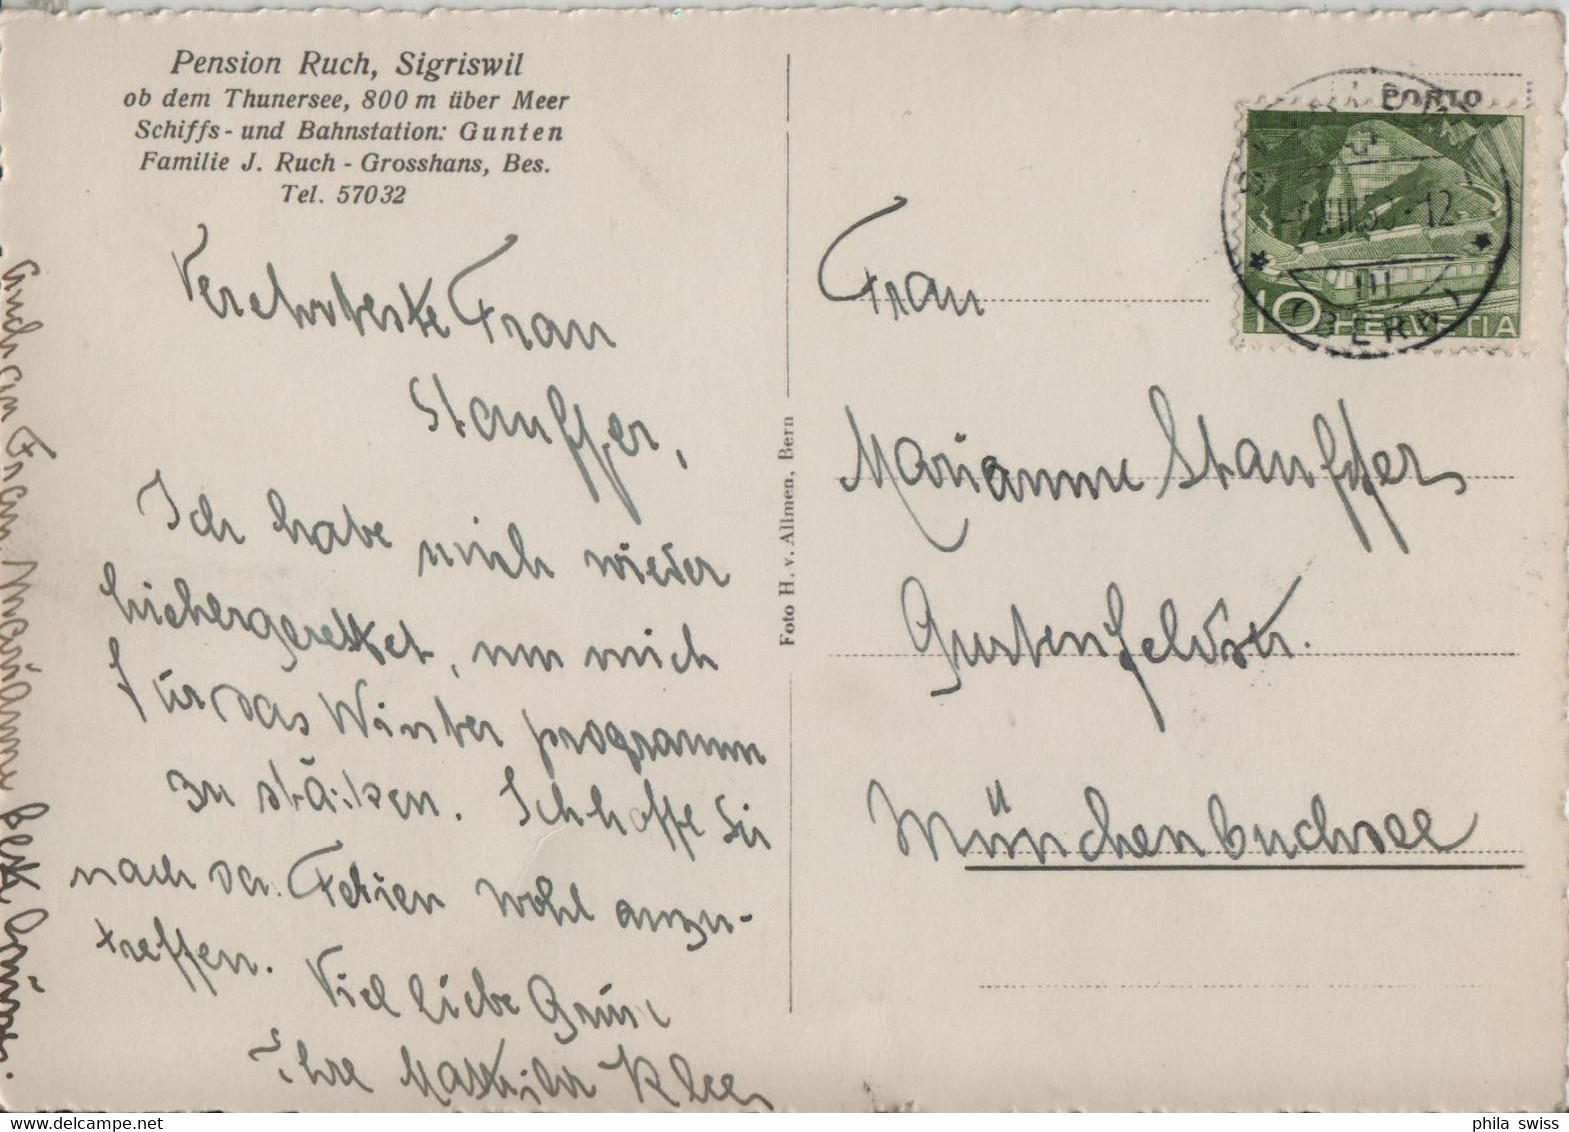 Pension Ruch, Sigriswil
ob dem Thunersee, 800 m über Meer
Schiffs- und Bahnstation: Gunten
Familie J. Ruch - Grosshans, Bes.
Tel. 57032
Verehrteste Frau
Stauffer,
Ich habe mich wieder
hiehergerettet, um mich
für das Winterprogramm
zu stärken. Ich hoffe Sie
nach den Ferien wohl anzu-
treffen. Viel liebe Grüsse
Ihre Mathilde Klee
Auch an Frau Marianne beste Grüsse.
Foto H. v. Allmen, Bern
PORTO
10 HELVETIA
Frau
Marianne Stauffer
Münchenbuchsee
phila swiss